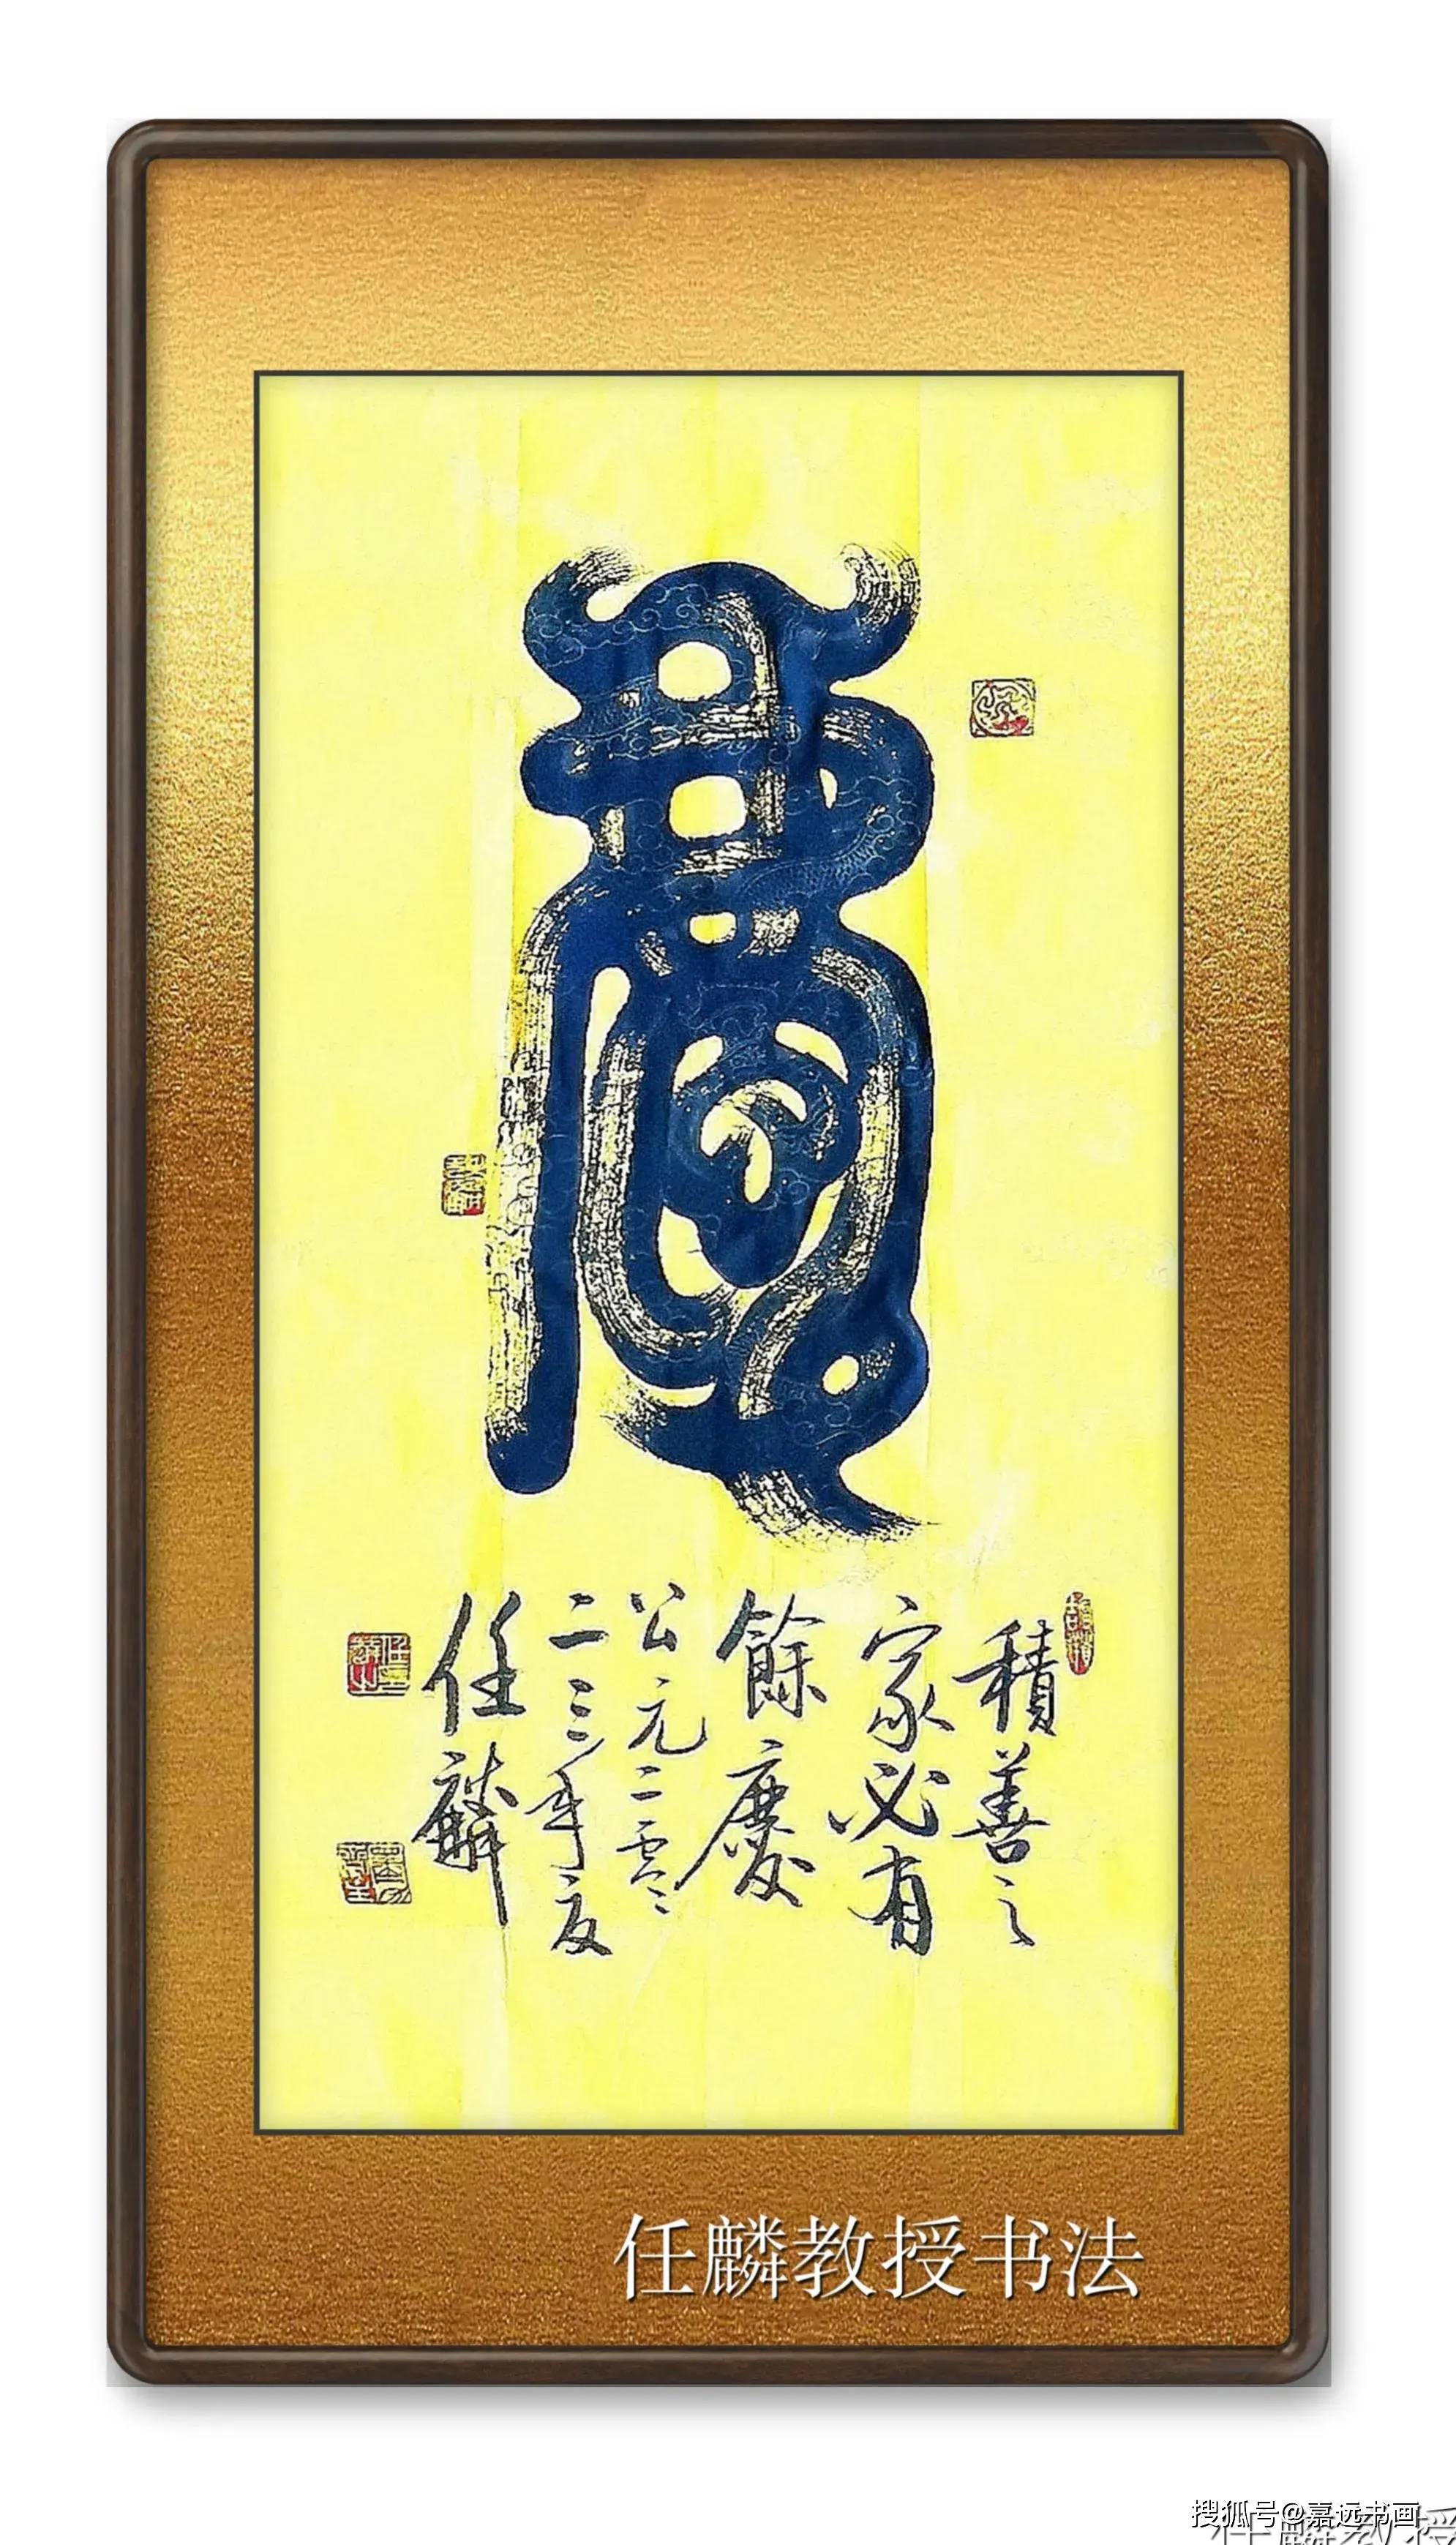 積善之
家必有
餘慶
公元二零二
二三年夏
任麟
任麟教授书法
搜狐号@嘉远书画
任麟教授